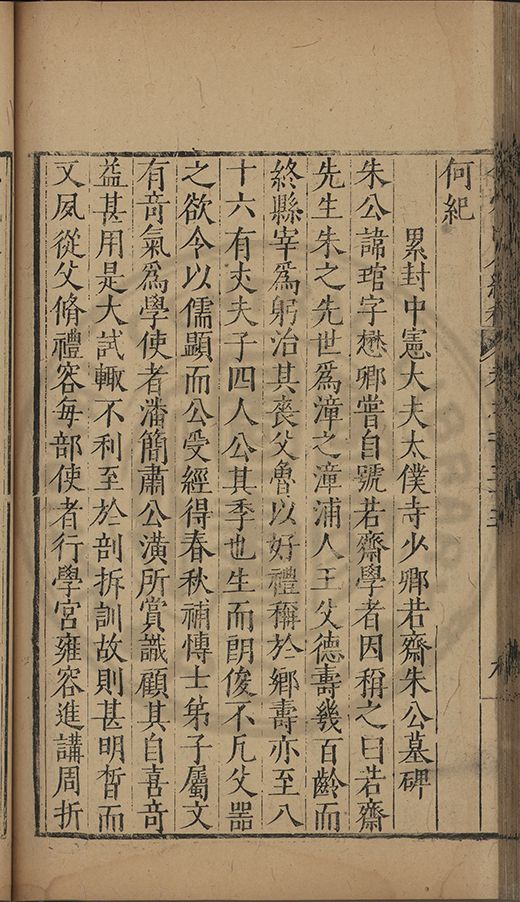 何紀
累封中憲大夫太僕寺少卿若齋朱公墓碑
朱公諱琯字懋卿嘗自號若齋學者因稱之曰若齋
先生朱之先世爲漳之漳浦人王父德壽幾百齡而
終縣宰爲躬治其喪父魯以好禮稱於鄉壽亦至八
十六有丈夫子四人公其季也生而朗俊不凡父器
之欲令以儒顯而公受經得春秋補愽士弟子屬文
有竒氣爲學使者潘簡肅公潢所賞識顧其自喜竒
益甚用是大試輙不利至於剖拆訓故則甚明晳而
又夙從父脩禮容每部使者行學宮雍容進講周折